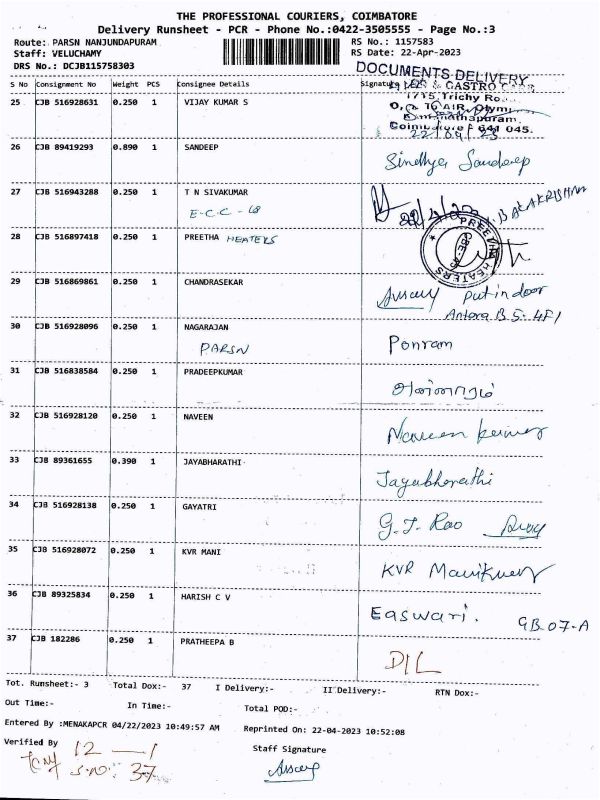 THE PROFESSIONAL COURIERS, COIMBATORE
Delivery Runsheet - PCR - Phone No.:0422-3505555 - Page No.:3
Route: PARSN NANJUNDAPURAM RS No.: 1157583
Staff: VELUCHAMY RS Date: 22-Apr-2023
DRS No.: DCJB115758303
DOCUMENTS DELIVERY
S No Consignment No Weight PCS Consignee Details Signature
& GASTRO
1715, Trichy
25 CJB 516928631 0.250 1 VIJAY KUMAR S
Coimbatore - 641 045.
22/04/23
26 CJB 89419293 0.890 1 SANDEEP
Sindhya Sandeep
27 CJB 516943288 0.250 1 T N SIVAKUMAR
E-C-C-
22/4/23
28 CJB 516897418 0.250 1 PREETHA HEATERS
PREETHA HEATERS
29 CJB 516869861 0.250 1 CHANDRASEKAR
put in door
Antara B 5- 4F1
30 CJB 516928096 0.250 1 NAGARAJAN
PARSN
Ponram
31 CJB 516838584 0.250 1 PRADEEPKUMAR
32 CJB 516928120 0.250 1 NAVEEN
Naveen Kumar
33 CJB 89361655 0.390 1 JAYABHARATHI
Jayabharathi
34 CJB 516928138 0.250 1 GAYATRI
G.J. Rao
35 CJB 516928072 0.250 1 KVR MANI
KVR
36 CJB 89325834 0.250 1 HARISH C V
Easwari. GB 07-A
37 CJB 182286 0.250 1 PRATHEEPA B
DIL
Tot. Runsheet:- 3 Total Dox:- 37 I Delivery:- II Delivery:- RTN Dox:-
Out Time:- In Time:- Total POD:-
Entered By :MENAKAPCR 04/22/2023 10:49:57 AM Reprinted On: 22-04-2023 10:52:08
Verified By 12 — 1
S.No: 37
Staff Signature